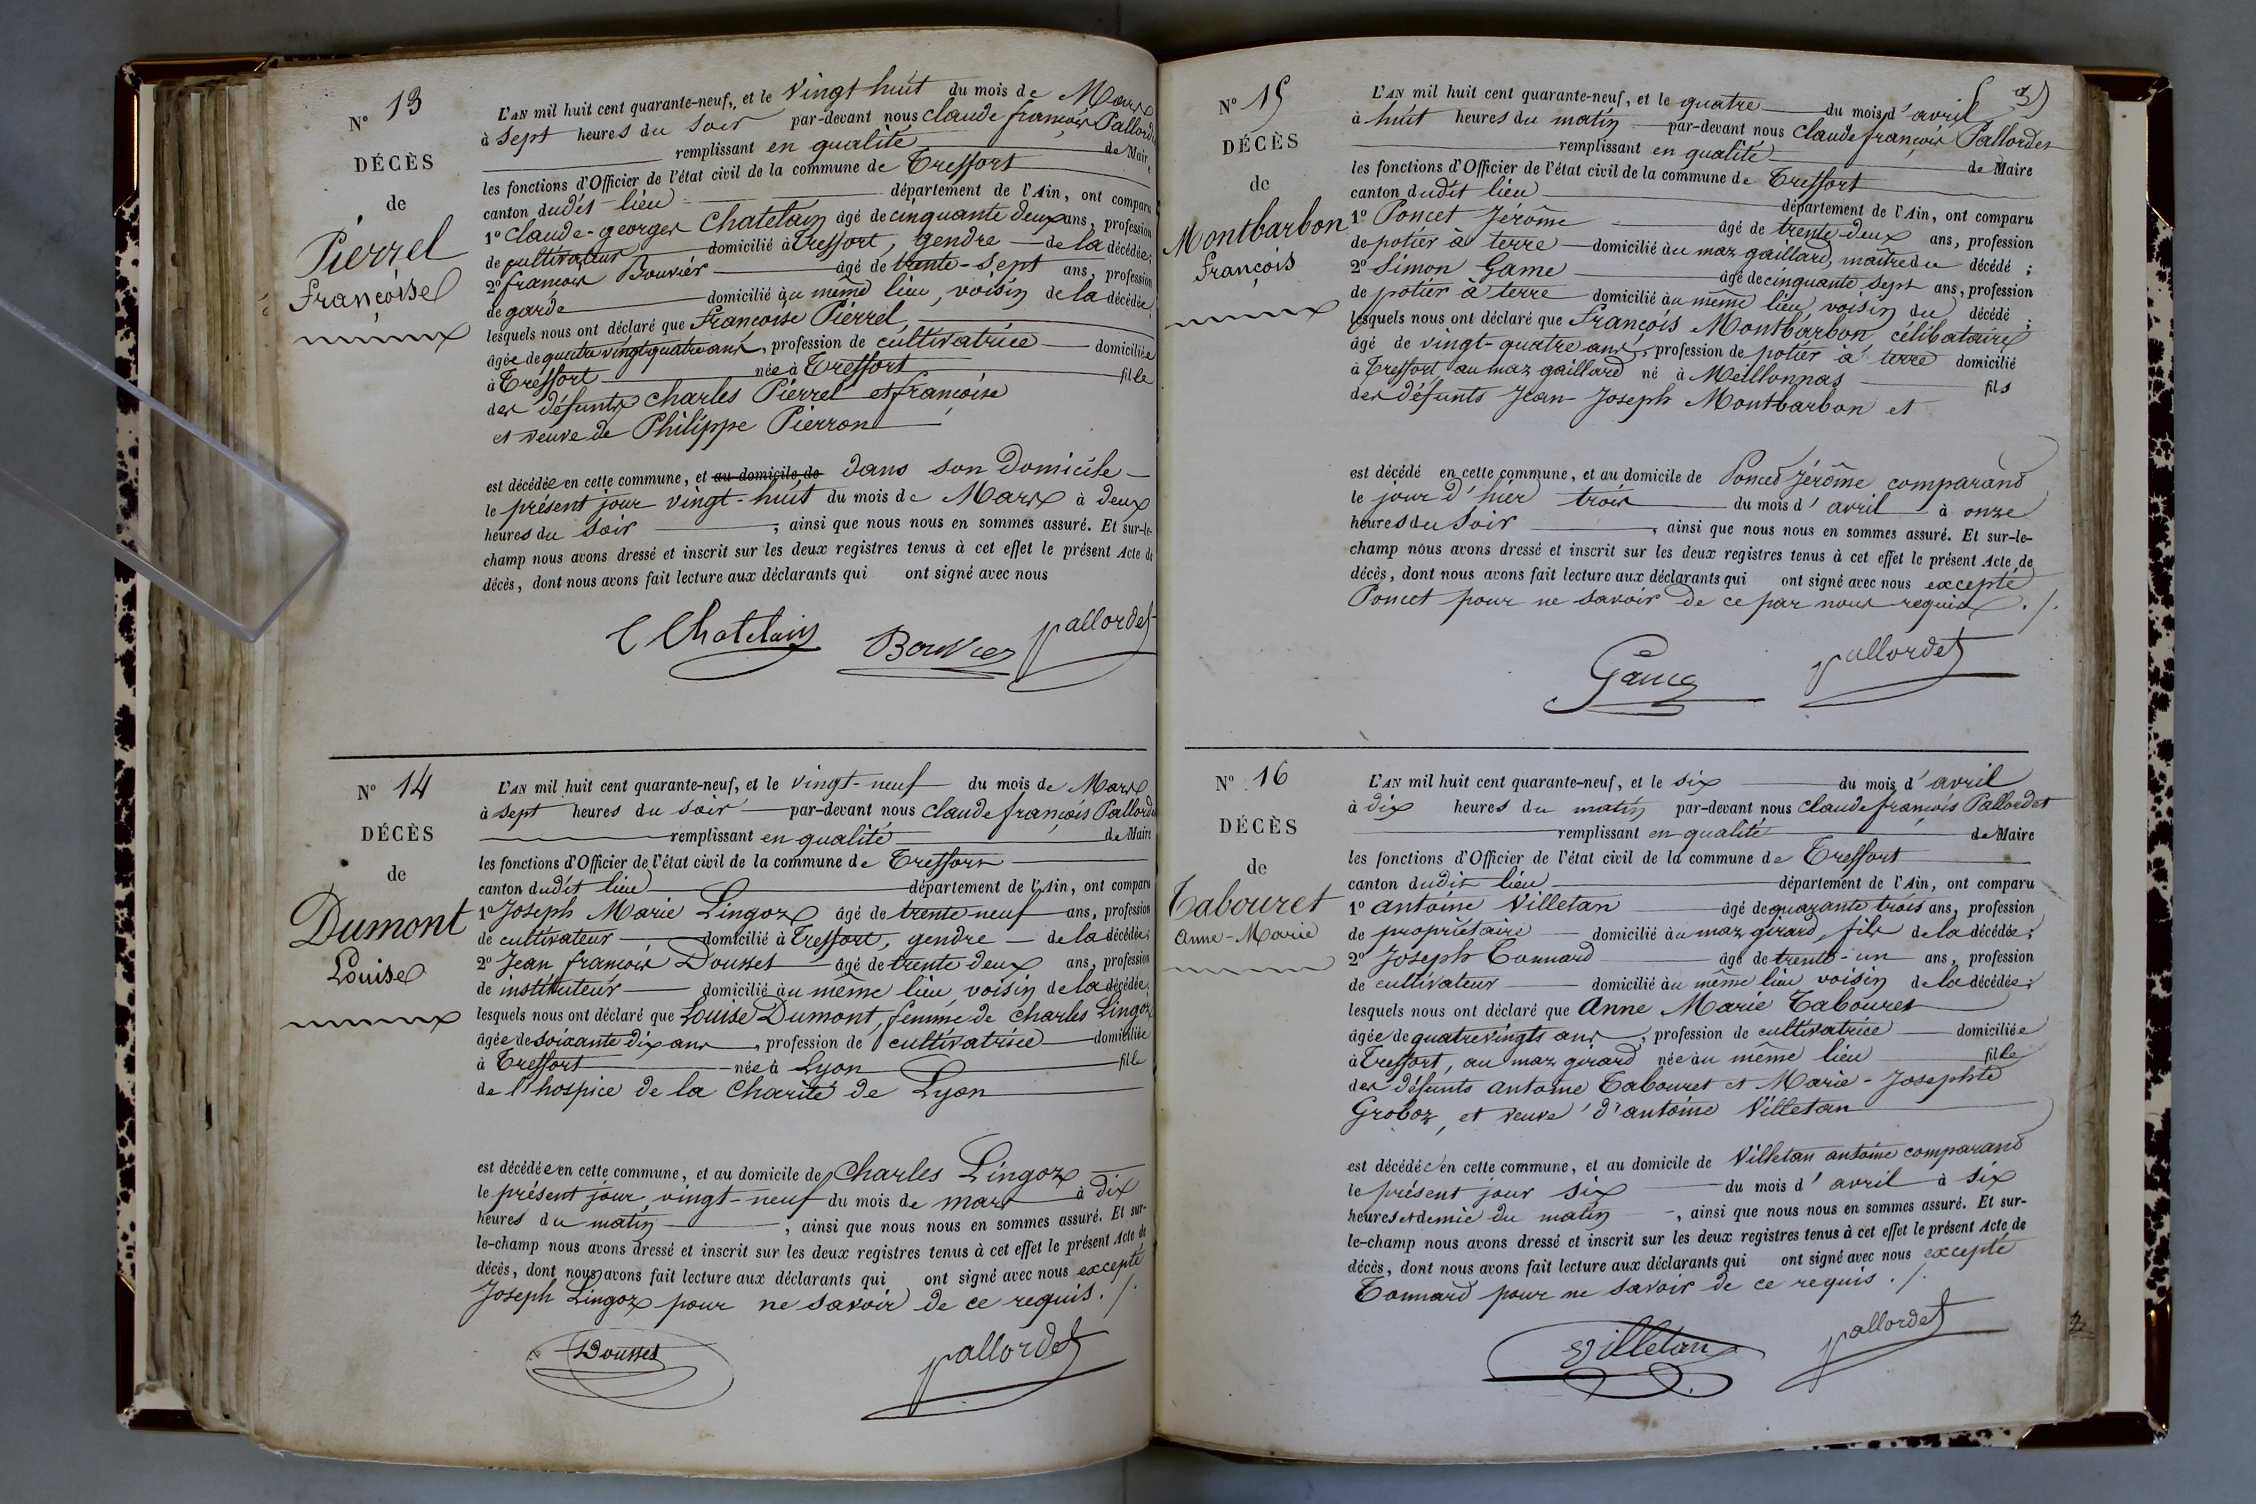 N° 13
DÉCÈS
de
Pierrel
Françoise
L'AN mil huit cent quarante-neuf, et le vingt huit du mois de Mars
à sept heures du soir par-devant nous claude françois Pallordet
remplissant en qualité de Maire
les fonctions d'Officier de l'état civil de la commune de Treffort
canton dudit lieu département de l'Ain, ont comparu
1° claude-georges Chatelain âgé de cinquante deux ans, profession
de cultivateur domicilié à Treffort, gendre de la décédée;
2° françois Bouvier âgé de trente-sept ans, profession
de garde domicilié au même lieu, voisin de la décédée;
lesquels nous ont déclaré que Françoise Pierrel,
âgée de quatre vingt quatre ans, profession de cultivatrice domiciliée
à Treffort née à Treffort fille
des défunts charles Pierrel et françoise
et veuve de Philippe Pierron
est décédée en cette commune, et au domicile de dans son domicile
le présent jour vingt-huit du mois de Mars à deux
heures du soir ; ainsi que nous nous en sommes assuré. Et sur-le-
champ nous avons dressé et inscrit sur les deux registres tenus à cet effet le présent Acte de
décès, dont nous avons fait lecture aux déclarants qui ont signé avec nous
C Chatelain Bouvier Pallordet
N° 14
DÉCÈS
de
Dumont
Louise
L'AN mil huit cent quarante-neuf, et le vingt-neuf du mois de Mars
à sept heures du soir par-devant nous claude françois Pallordet
remplissant en qualité de Maire
les fonctions d'Officier de l'état civil de la commune de Treffort
canton dudit lieu département de l'Ain, ont comparu
1° Joseph Marie Lingoz âgé de trente neuf ans, profession
de cultivateur domicilié à Treffort, gendre de la décédée;
2° Jean françois Dousset âgé de trente deux ans, profession
de instituteur domicilié au même lieu, voisin de la décédée;
lesquels nous ont déclaré que Louise Dumont, femme de charles Lingoz
âgée de soixante dix ans, profession de cultivatrice domiciliée
à Treffort née à Lyon fille
de l'hospice de la charité de Lyon
est décédée en cette commune, et au domicile de charles Lingoz
le présent jour, vingt-neuf du mois de mars à dix
heures du matin , ainsi que nous nous en sommes assuré. Et sur-
le-champ nous avons dressé et inscrit sur les deux registres tenus à cet effet le présent Acte de
décès, dont nous avons fait lecture aux déclarants qui ont signé avec nous excepté
Joseph Lingoz pour ne savoir de ce requis ./.
Dousset Pallordet
35
N° 15
DÉCÈS
de
Montbarbon
françois
L'AN mil huit cent quarante-neuf, et le quatre du mois d'avril
à huit heures du matin par-devant nous claude françois Pallordet
remplissant en qualité de Maire
les fonctions d'Officier de l'état civil de la commune de Treffort
canton dudit lieu département de l'Ain, ont comparu
1° Poncet Jérôme âgé de trente deux ans, profession
de potier à terre domicilié au maz gaillard, maître du décédé ;
2° Simon Game âgé de cinquante sept ans, profession
de potier à terre domicilié au même lieu, voisin du décédé ;
lesquels nous ont déclaré que françois Montbarbon, célibataire
âgé de vingt-quatre ans, profession de potier à terre domicilié
à Treffort au maz gaillard né à Meillonnas fils
des défunts Jean Joseph Montbarbon et
est décédé en cette commune, et au domicile de Poncet Jérôme comparand
le jour d'hier trois du mois d'avril à onze
heures du soir , ainsi que nous nous en sommes assuré. Et sur-le-
champ nous avons dressé et inscrit sur les deux registres tenus à cet effet le présent Acte de
décès, dont nous avons fait lecture aux déclarants qui ont signé avec nous excepté
Poncet pour ne savoir de ce par nous requis ./.
Game Pallordet
N° 16
DÉCÈS
de
Tabouret
Anne-Marie
L'AN mil huit cent quarante-neuf, et le six du mois d'avril
à dix heures du matin par-devant nous claude françois Pallordet
remplissant en qualité de Maire
les fonctions d'Officier de l'état civil de la commune de Treffort
canton dudit lieu département de l'Ain, ont comparu
1° antoine Villetan âgé de quarante trois ans, profession
de propriétaire domicilié au maz girard, fils de la décédée;
2° Joseph Connard âgé de trente-un ans, profession
de cultivateur domicilié au même lieu voisin de la décédée;
lesquels nous ont déclaré que Anne Marie Tabouret
âgée de quatrevingts ans, profession de cultivatrice domiciliée
à Treffort, au maz girard née au même lieu fille
des défunts antoine Tabouret et Marie-Josephte
Groboz, et veuve d'antoine Villetan
est décédée en cette commune, et au domicile de Villetan antoine comparand
le présent jour six du mois d'avril à six
heures et demie du matin , ainsi que nous nous en sommes assuré. Et sur-
le-champ nous avons dressé et inscrit sur les deux registres tenus à cet effet le présent Acte de
décès, dont nous avons fait lecture aux déclarants qui ont signé avec nous excepté
Connard pour ne savoir de ce requis ./.
Villetan Pallordet